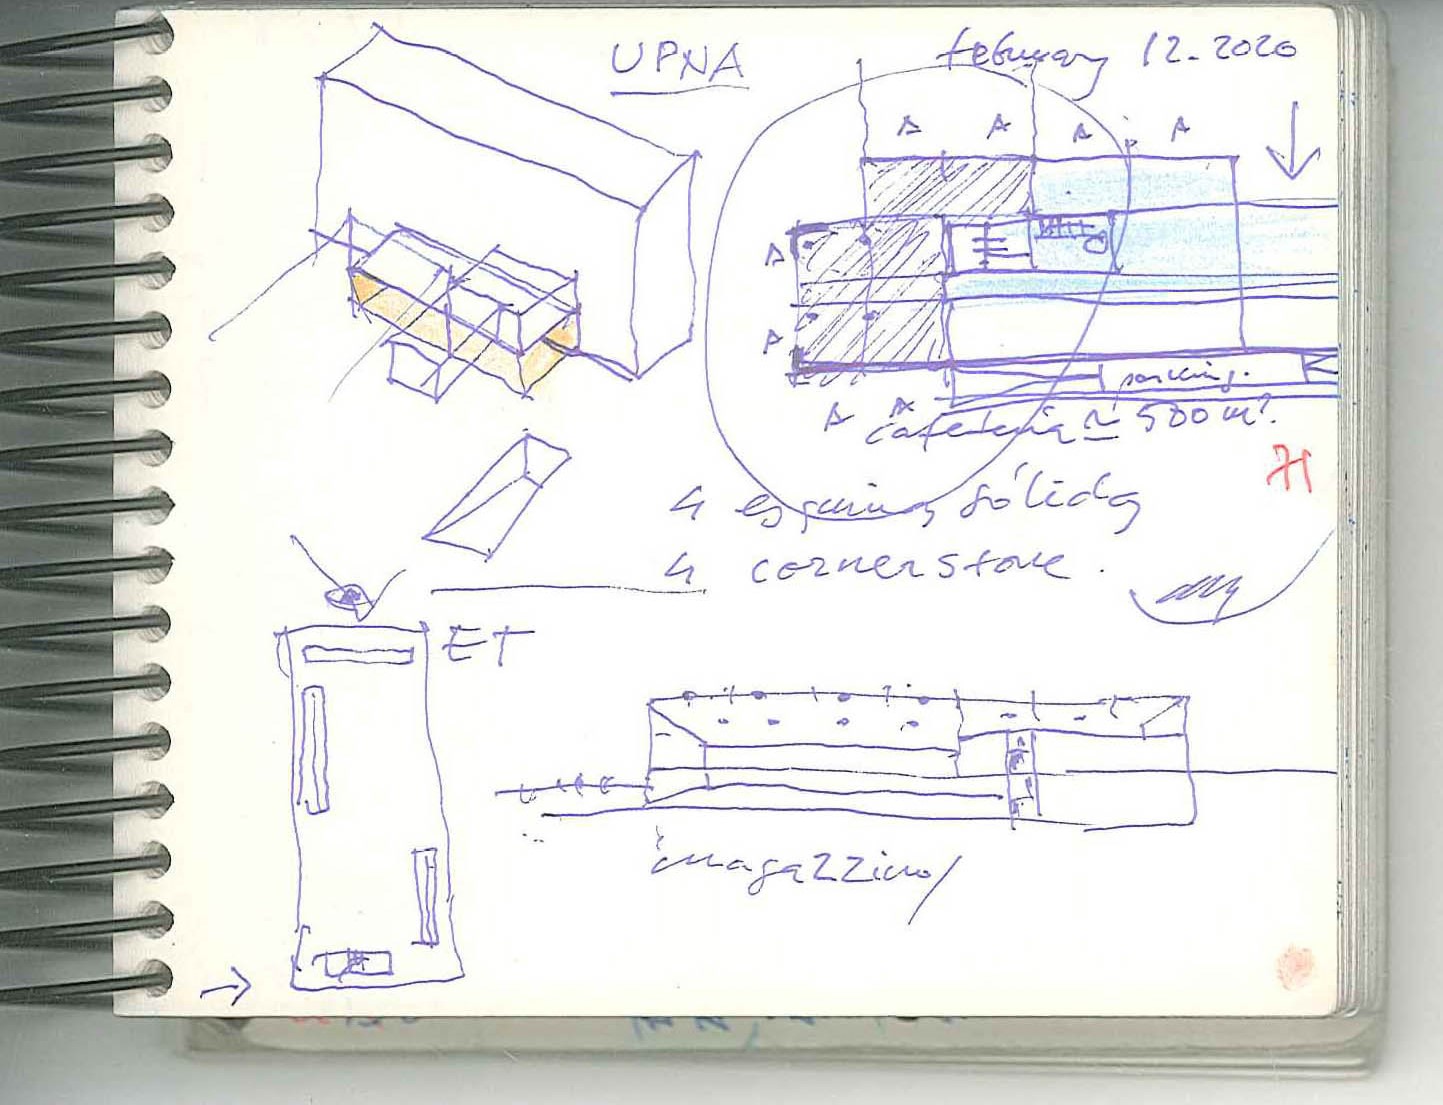 UPNA
february 12. 2020
A A A A
A
A
parking.
A A
cafetería ≃ 500 m².
71
4 esquinas sólidas
4 cornerstone.
ET
imagazzino/